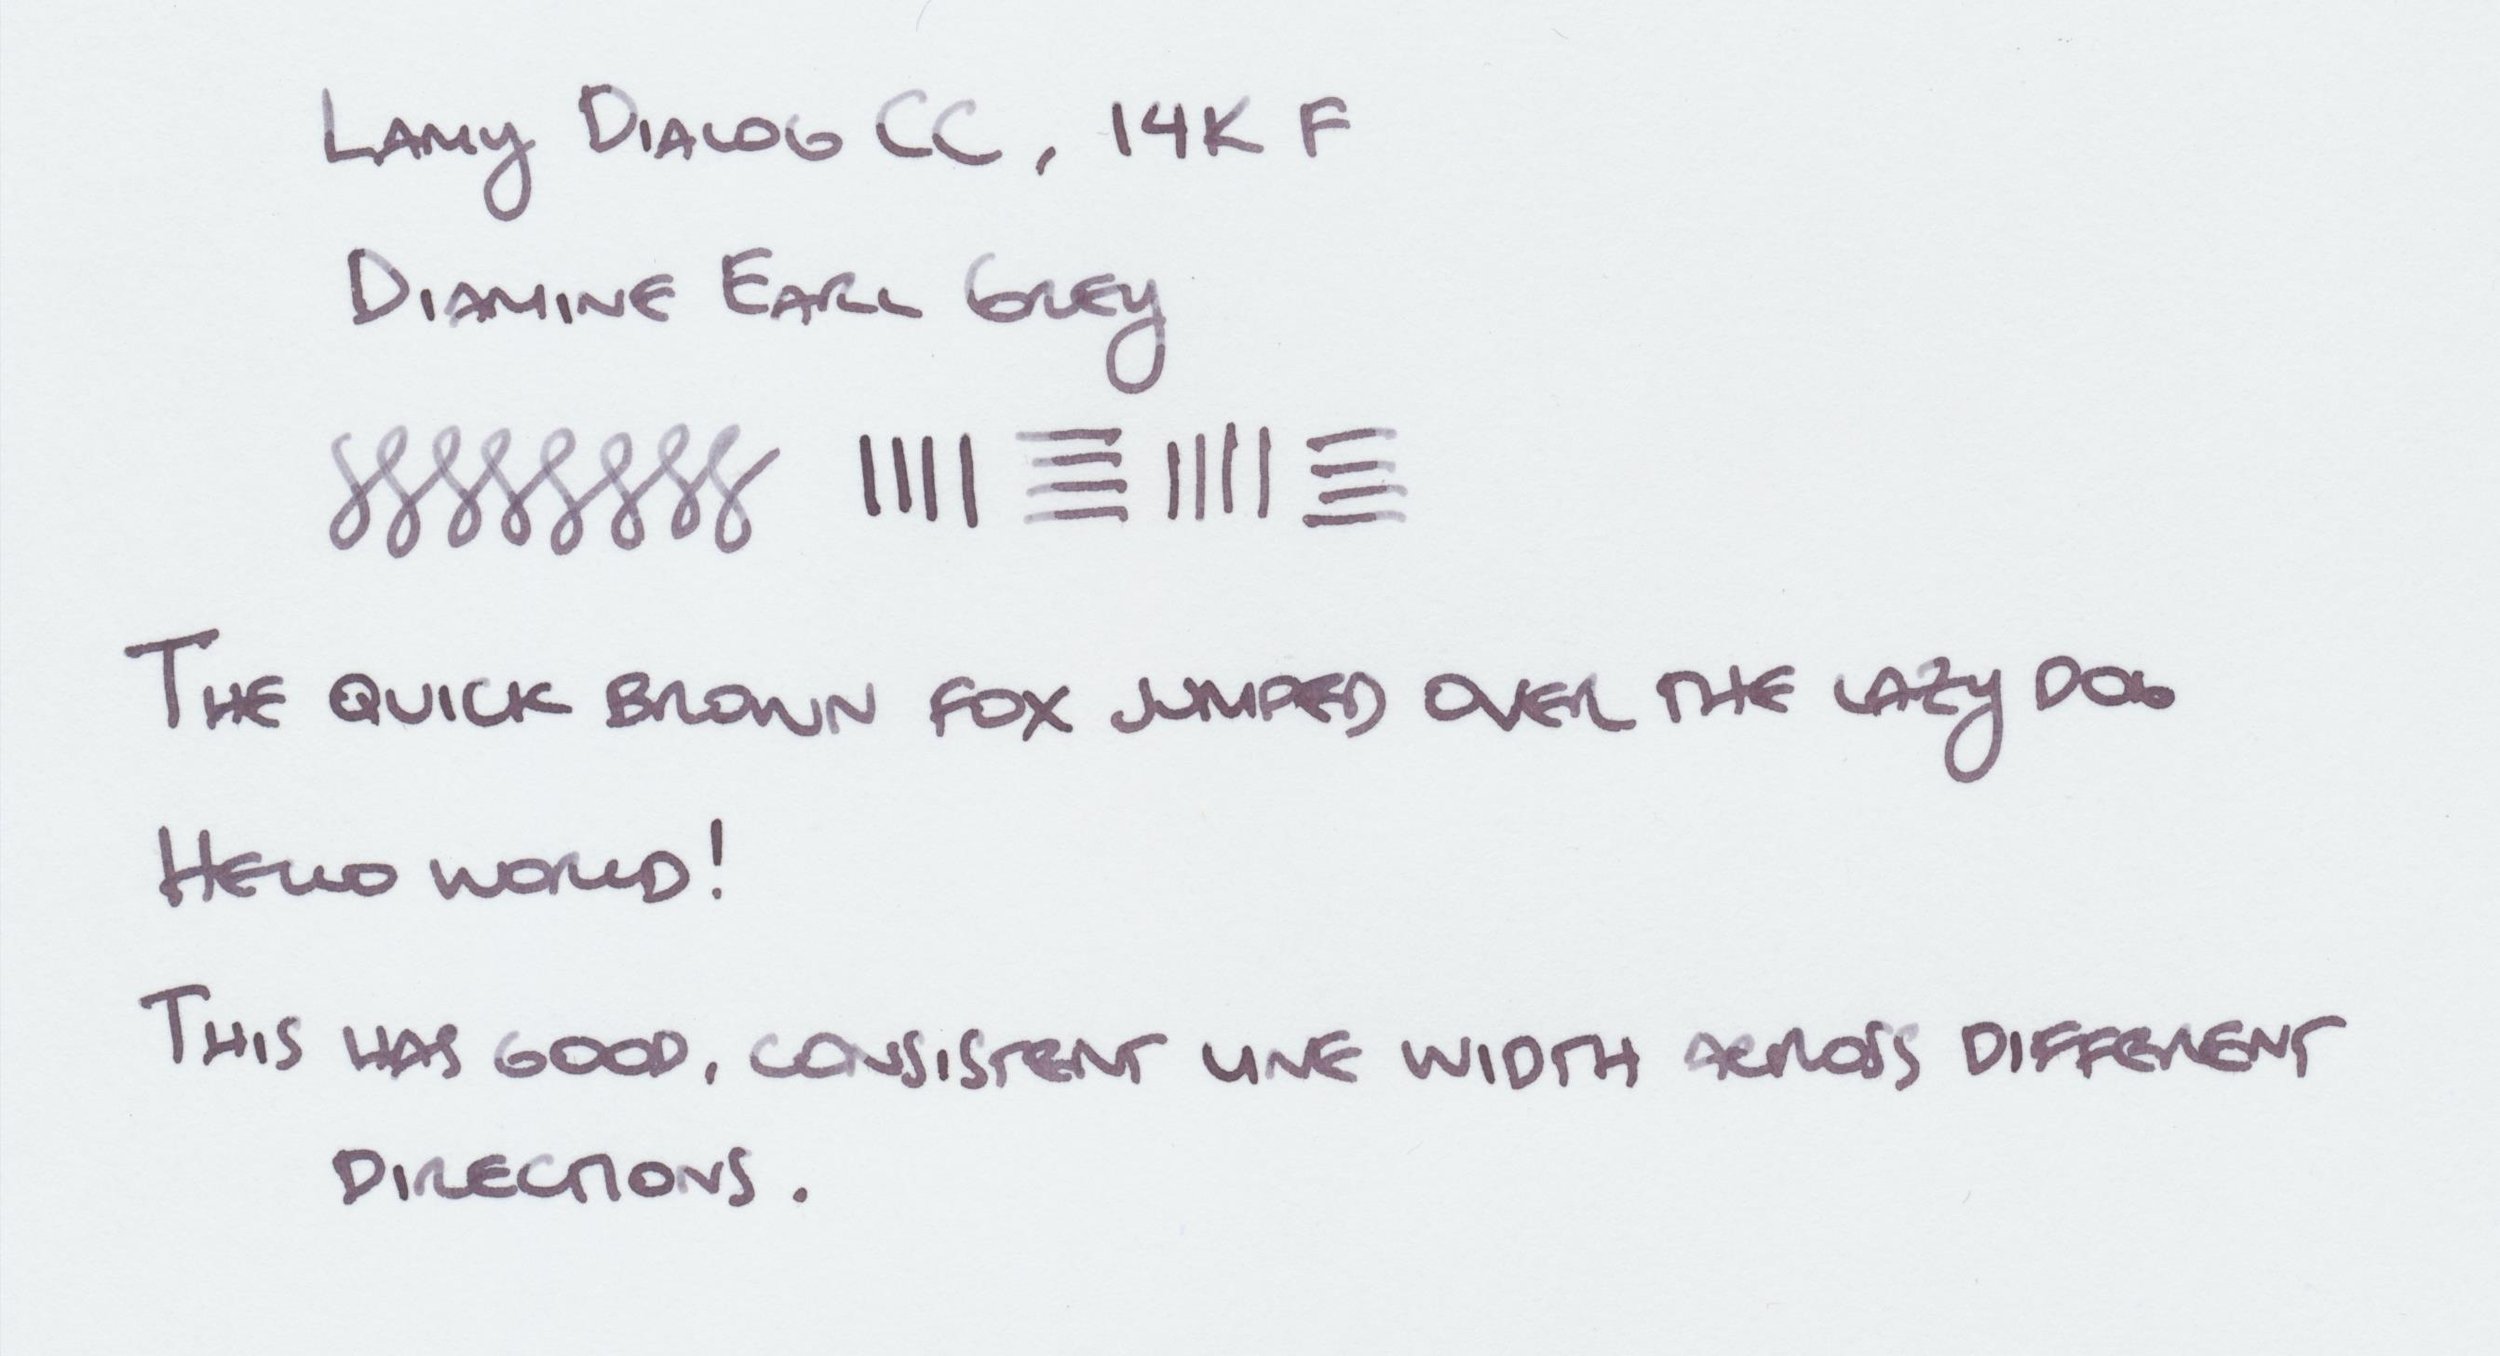 Lamy Dialog CC, 14K F
Diamine Earl Grey
The quick brown fox jumped over the lazy dog
Hello world!
This has good, consistent line width across different
directions.